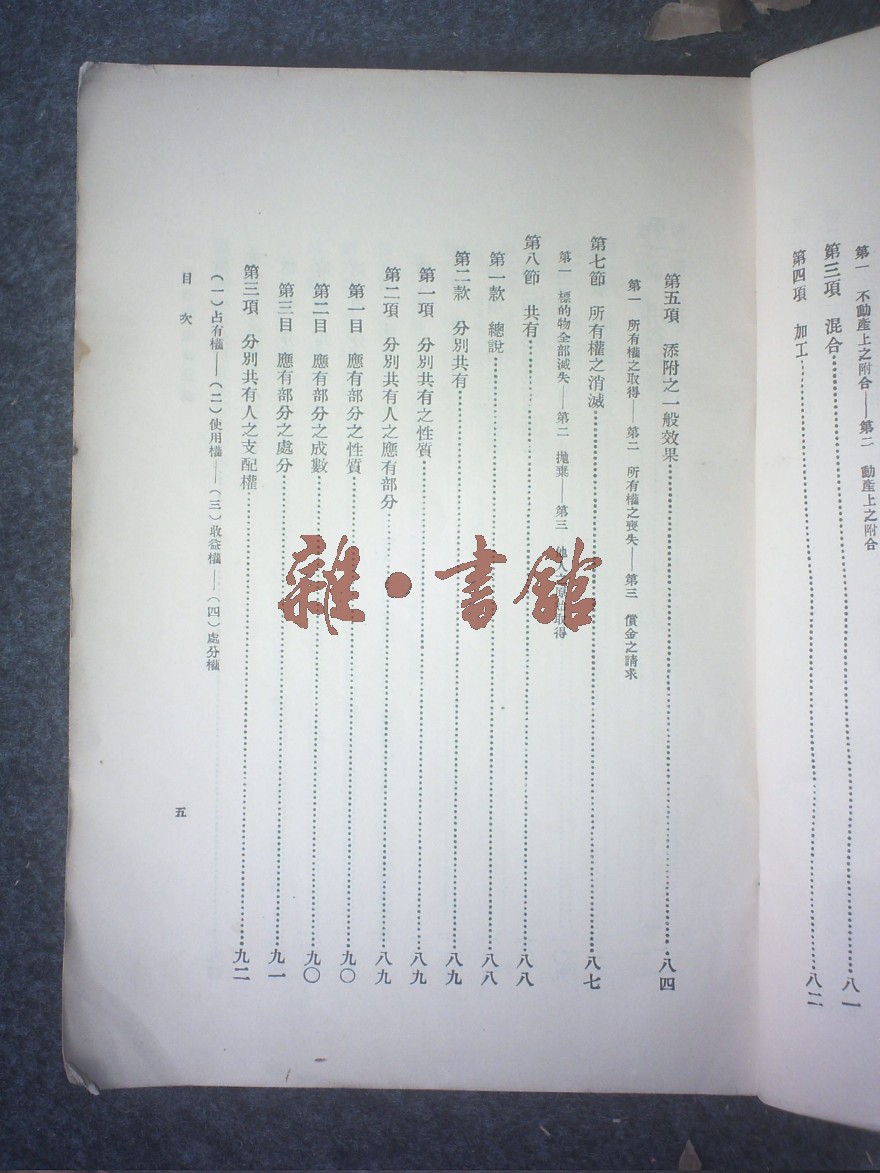 第一　不動產上之附合——第二　動產上之附合
第三項　混合……八一
第四項　加工……八二
第五項　添附之一般效果……八四
第一　所有權之取得——第二　所有權之喪失——第三　償金之請求
第七節　所有權之消滅……八七
第一　標的物全部滅失——第二　拋棄——第三　他人之取得
第八節　共有……八八
第一款　總說……八八
第二款　分別共有……八九
第一項　分別共有之性質……八九
第二項　分別共有人之應有部分……八九
第一目　應有部分之性質……九〇
第二目　應有部分之成數……九〇
第三目　應有部分之處分……九一
第三項　分別共有人之支配權……九二
（一）占有權——（二）使用權——（三）收益權——（四）處分權
目　次
五
雜・書館